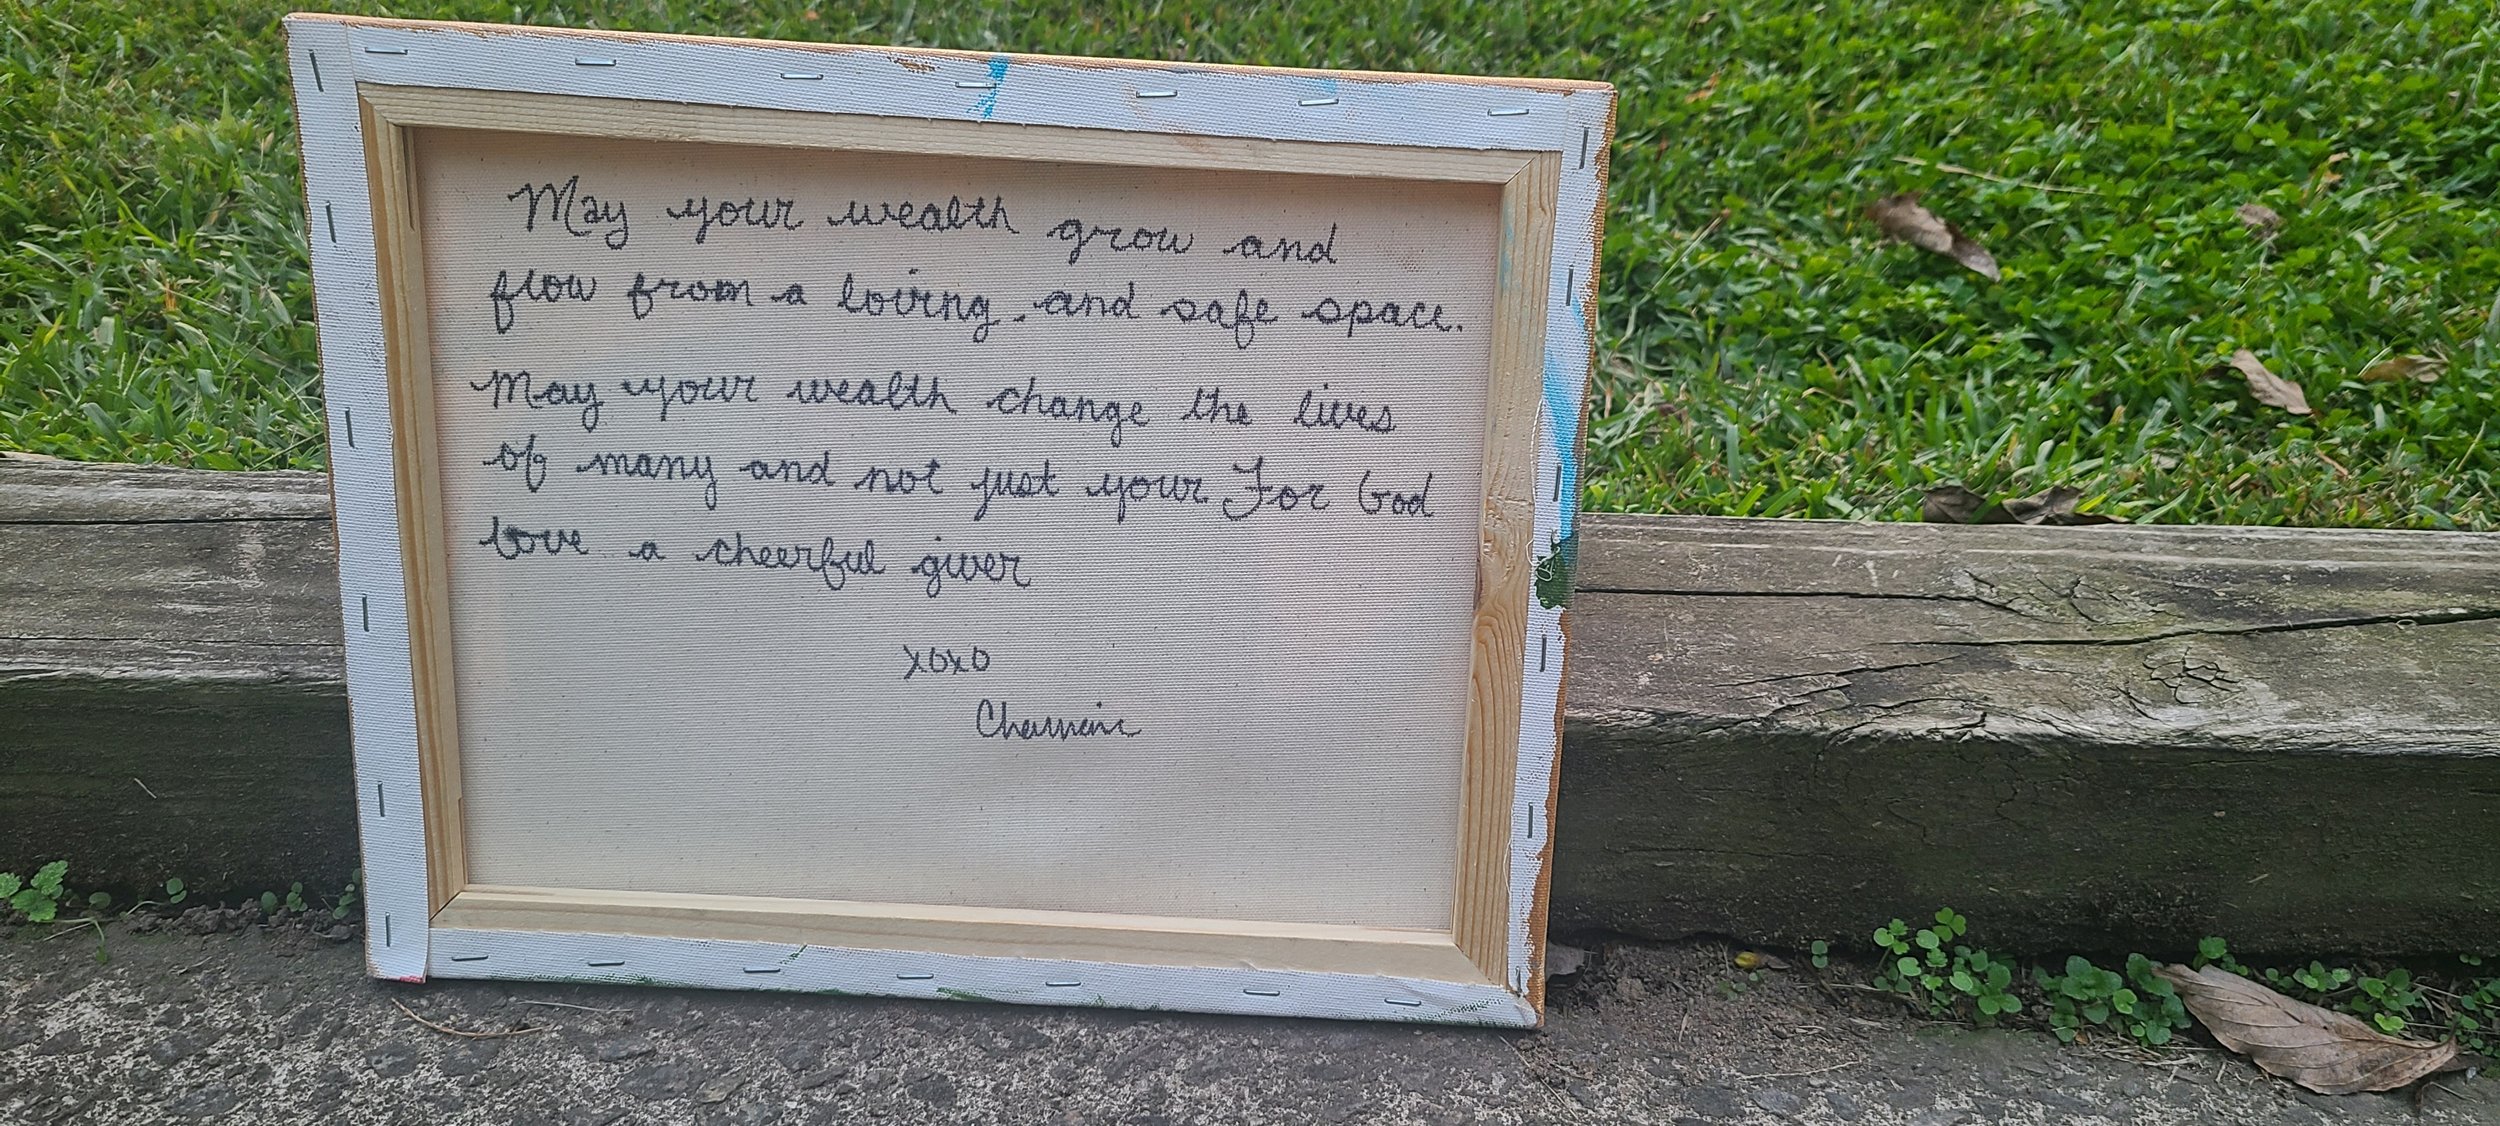 May your wealth grow and
flow from a loving and safe space.
May your wealth change the lives
of many and not just your For God
love a cheerful giver
xoxo